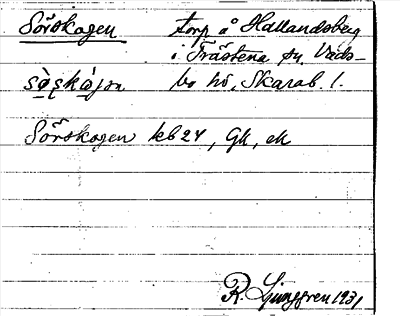 Sörskogen torp å Hallandsberg
i Trästena sn. Vads-
bo hd, Skarab. l.
Sörskogen kb 24, GK, eK
R. Ljunggren 1931